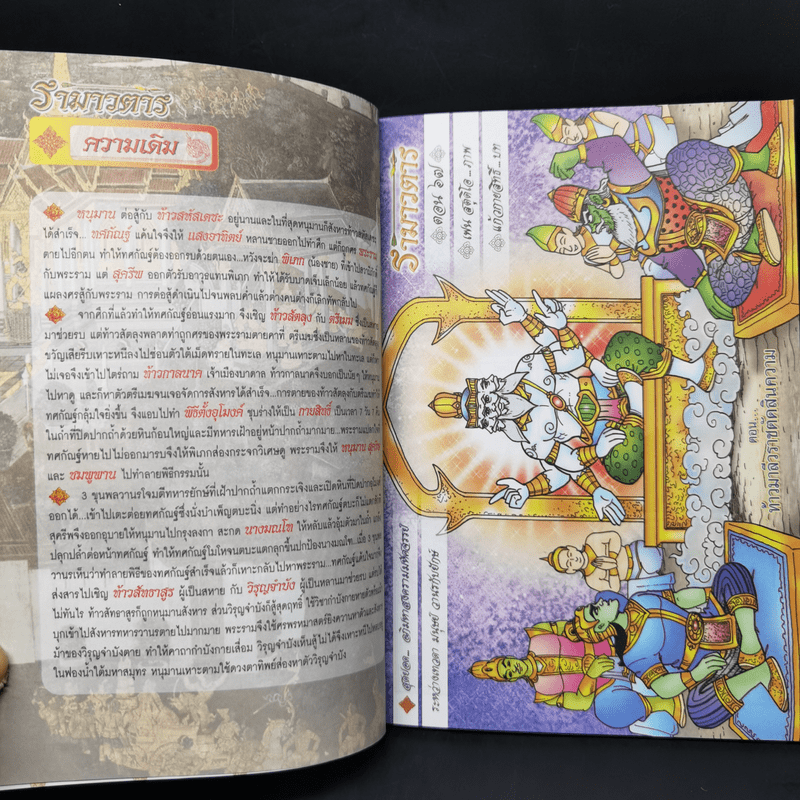 รามาวตาร
ความเดิม
หนุมาน ต่อสู้กับ ท้าวสหัสเดชะ อยู่นานและในที่สุดหนุมานก็สังหารท้าวสหัสเดชะ
ได้สำเร็จ... ทศกัณฐ์ แค้นใจจึงให้ แสงอาทิตย์ หลานชายออกไปทำศึก แต่ก็ถูกศร พระราม
ตายไปอีกตน ทำให้ทศกัณฐ์ต้องออกรบด้วยตนเอง...หวังจะฆ่า พิเภก (น้องชาย) ที่เข้าไป
กับพระราม แต่ สุครีพ ออกตัวรับอาวุธแทนพิเภก ทำให้ได้รับบาดเจ็บเล็กน้อย แล้วทศกัณฐ์
แผลงศรสู้กับพระราม การต่อสู้ดำเนินไปจนพลบค่ำแล้วต่างคนต่างก็เลิกทัพกลับไป
จากศึกที่แล้วทำให้ทศกัณฐ์อ่อนแรงมาก จึงเชิญ ท้าวสัตลุง กับ ตรีเมฆ ซึ่งเป็นหลาน
มาช่วยรบ แต่ท้าวสัตลุงพลาดท่าถูกศรของพระรามตายคาที่ ตรีเมฆซึ่งเป็นหลานของท้าวสัตลุง
ขวัญเสียรีบเหาะหนีลงไปซ่อนตัวใต้เม็ดทรายในทะเล หนุมานเหาะตามไปหาในทะเล แต่ก็
ไม่เจอจึงเข้าไปไตร่ถาม ท้าวกาลนาค เจ้าเมืองบาดาล ท้าวกาลนาคจึงบอกเป็นนัยๆ ให้หนุมาน
ไปหาดู และก็หาตัวตรีเมฆจนเจอจัดการสังหารได้สำเร็จ...การตายของท้าวสัตลุงกับตรีเมฆ
ทศกัณฐ์กลุ้มใจยิ่งขึ้น จึงแอบไปทำ พิธีตั้งอุโมงค์ ชุบร่างให้เป็น กายสิทธิ์ เป็นเวลา ๗ วัน ๗ คืน
ในถ้ำที่ปิดปากถ้ำด้วยหินก้อนใหญ่และมีทหารเฝ้าอยู่หน้าปากถ้ำมากมาย...พระราม
ทศกัณฐ์หายไปไม่ออกมารบจึงให้พิเภกส่องกระจกวิเศษดู พระรามจึงให้ หนุมาน สุครีพ
และ ชมพูพาน ไปทำลายพิธีกรรมนั้น
3 ขุนพลวานรโจมตีทหารยักษ์ที่เฝ้าปากถ้ำแตกกระเจิงและเปิดหินที่ปิดปาก
ออกได้...เข้าไปเตะต่อยทศกัณฐ์ซึ่งนั่งบำเพ็ญตบะนิ่ง แต่ทำอย่างไรทศกัณฐ์ตบะก็ไม่
สุครีพจึงออกอุบายให้หนุมานไปกรุงลงกา สะกด นางมณโฑ ให้หลับแล้วอุ้มตัวมาในถ้ำ
ปลุกปล้ำต่อหน้าทศกัณฐ์ ทำให้ทศกัณฐ์โมโหจนตบะแตกลุกขึ้นปกป้องนางมณโฑ...เมื่อ 3 ขุนพล
วานรเห็นว่าทำลายพิธีของทศกัณฐ์สำเร็จแล้วก็เหาะกลับไปหาพระราม...ทศกัณฐ์
ส่งสารไปเชิญ ท้าวสัทธาสูร ผู้เป็นสหาย กับ วิรุญจำบัง ผู้เป็นหลานมาช่วยรบ
ไม่ทันไร ท้าวสัทธาสูรก็ถูกหนุมานสังหาร ส่วนวิรุญจำบังก็สู้สุดฤทธิ์ ใช้วิชากำบังกายหายตัว
บุกเข้าไปสังหารทหารวานรตายไปมากมาย พระรามจึงใช้ศรพรหมาสตร์ยิงความหาตัว
ม้าของวิรุญจำบังตาย ทำให้คาถากำบังกายเสื่อม วิรุญจำบังเห็นสู้ไม่ได้จึงเหาะหนีไป
ในฟองน้ำใต้มหาสมุทร หนุมานเหาะตามใช้ดวงตาทิพย์ส่องหาตัววิรุญจำบัง
รามาวตาร
ตอน ๖๗
เฟน สตูดิโอ_ภาพ
แก้วกายสิทธิ์_บท
ตอน...
ท้าวมาลีวราชตัดสินความ
สุดยอด... มหาสงครามมหัศจรรย์
ระหว่างเทวดา มนุษย์ วานรกับยักษ์